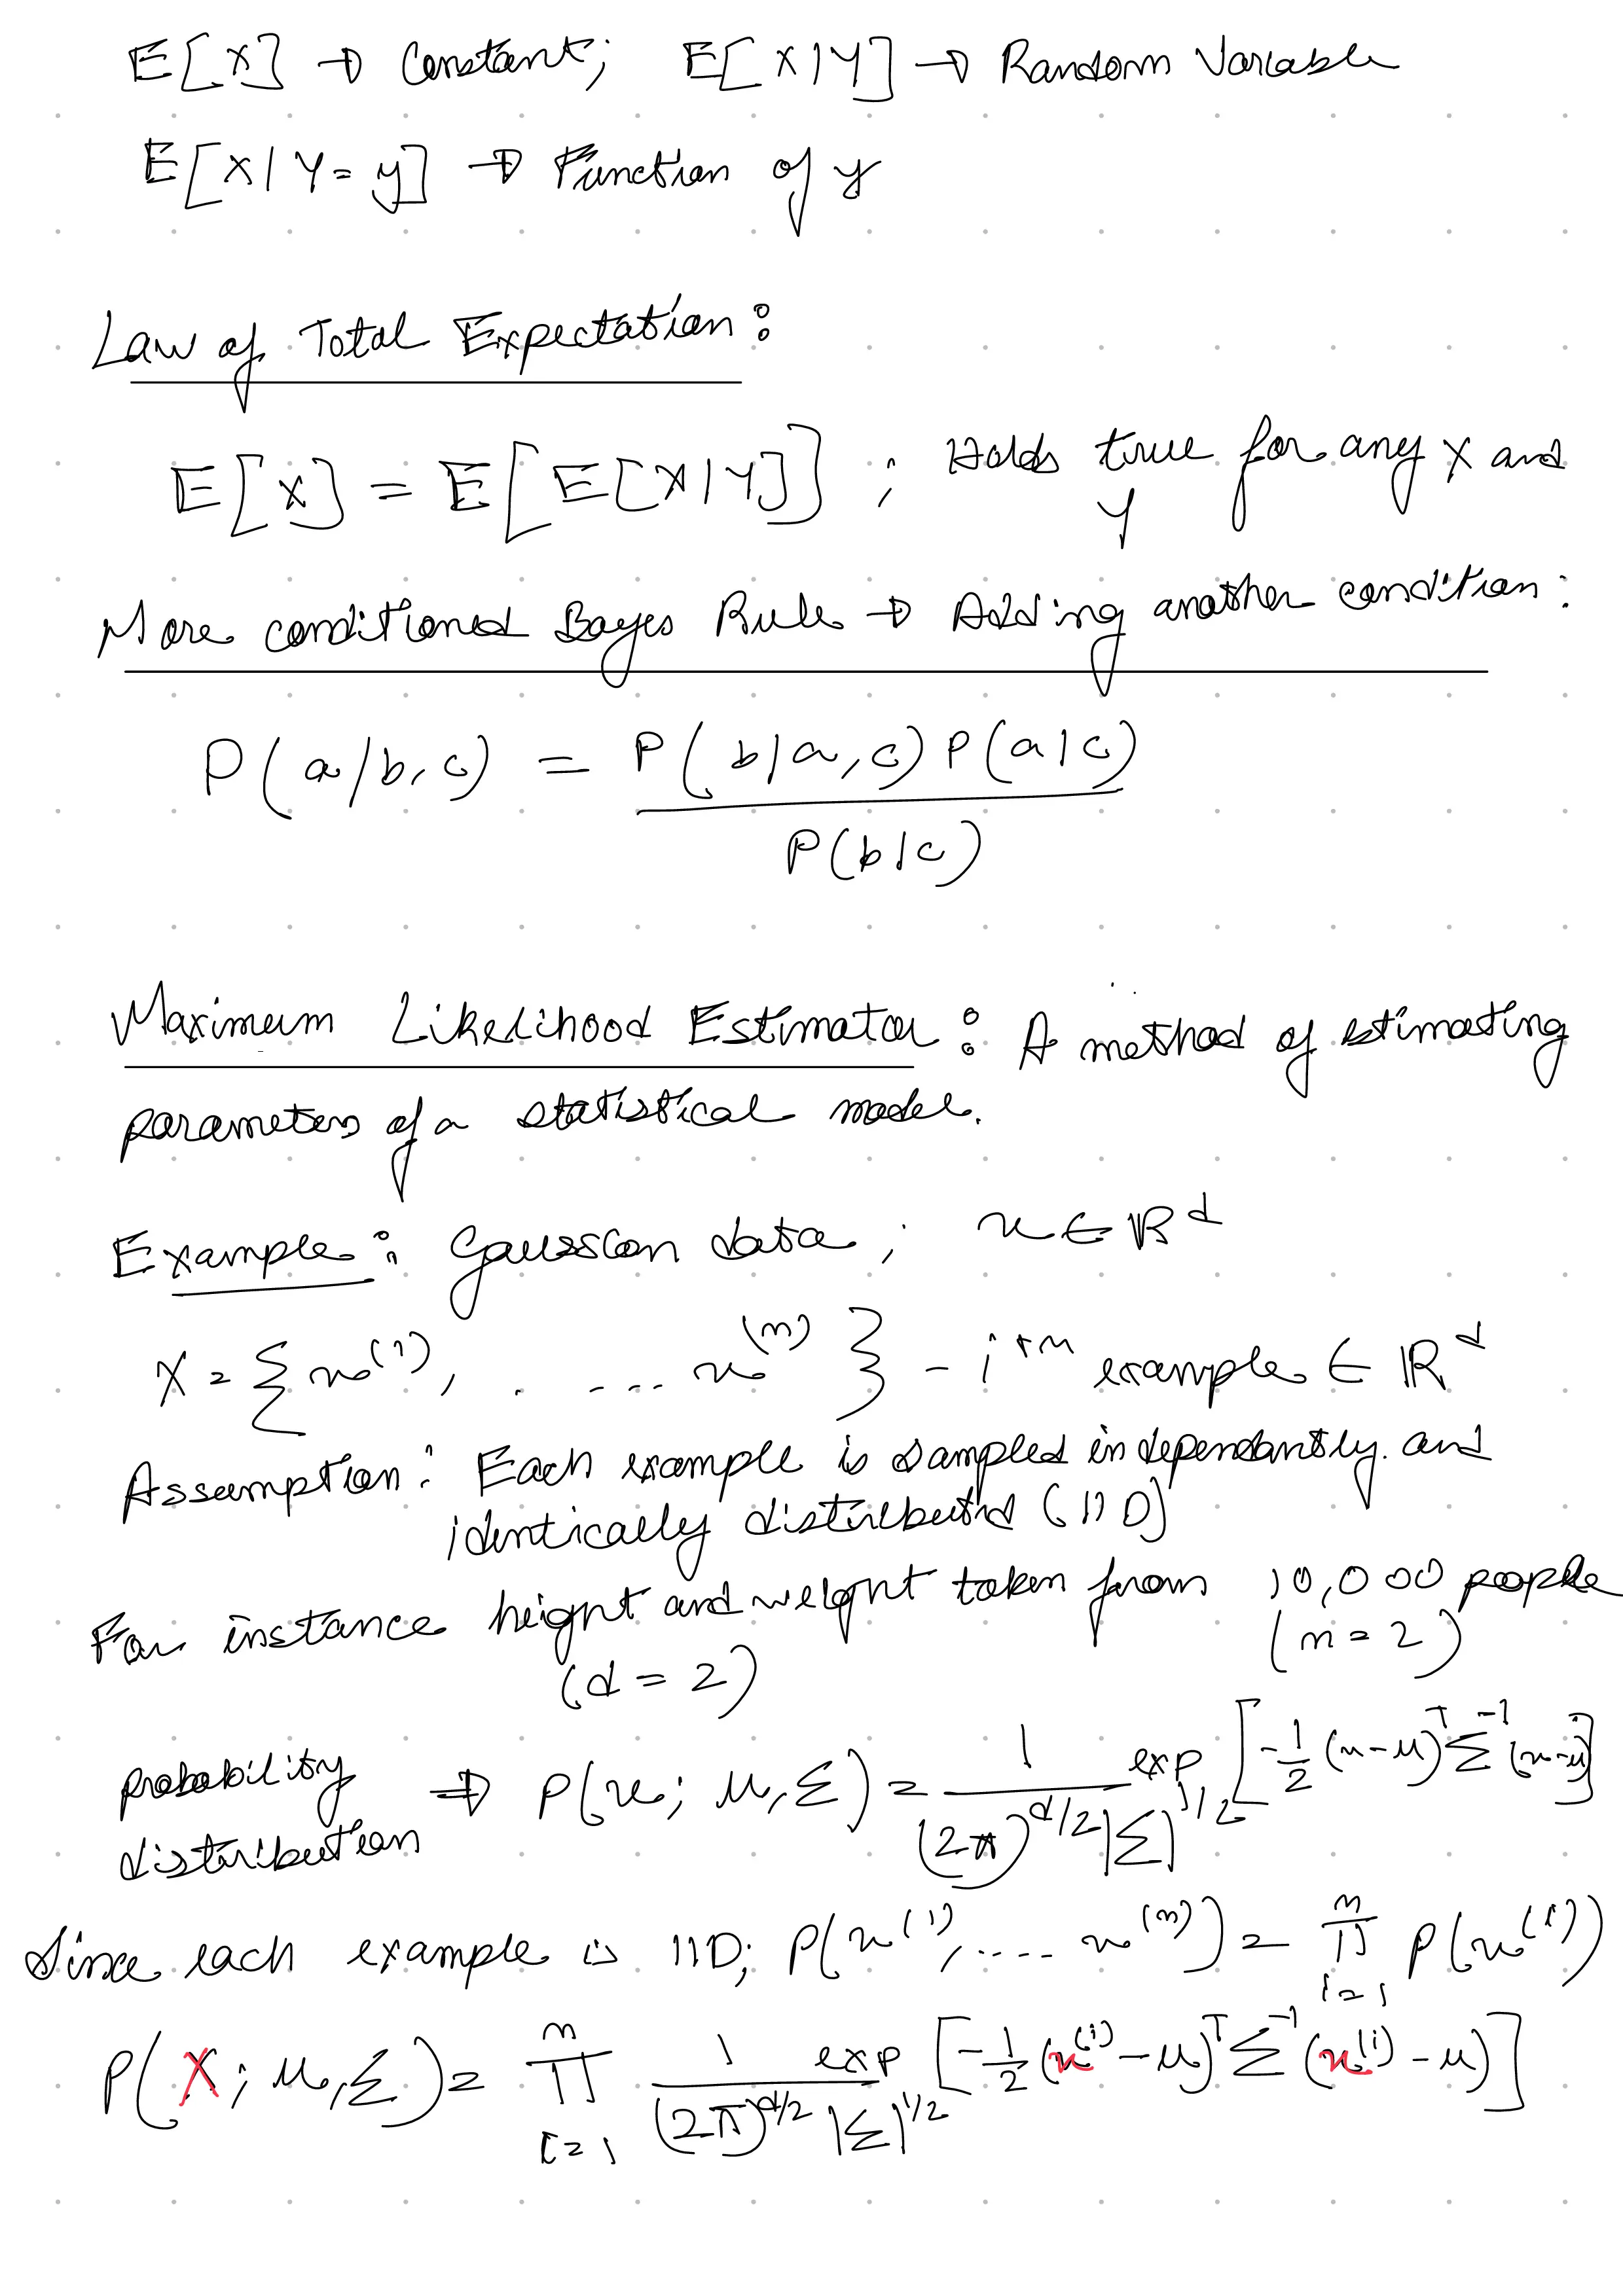 E[X] → Constant; E[X|Y] → Random Variable
E[X|Y=y] → Function of y
Law of Total Expectation:
E[X] = E[E[X|Y]] ; Holds true for any X and
Y
More conditioned Bayes Rule → Adding another condition:
P(a/b,c) = P(b|a,c) P(a|c)
P(b|c)
Maximum Likelihood Estimator: A method of estimating
parameters of a statistical model.
Example: Gaussian data; x ∈ ℝ^d
X = {x^(1), . ... x^(n)} - i^th example ∈ ℝ^d
Assumption: Each example is sampled independantly and
identically distributed (IID)
For instance height and weight taken from 10,000 people
(d = 2) (n = 2)
probability distribution ⇒ P(x; μ,Σ) = 1/((2π)^(d/2) |Σ|^(1/2)) exp[-1/2 (x-μ)^T Σ^-1 (x-μ)]
Since each example is IID; P(x^(1),.... x^(n)) = ∏_{i=1}^{n} P(x^(i))
P(X; μ,Σ) = ∏_{i=1}^{n} 1/((2π)^(d/2) |Σ|^(1/2)) exp[-1/2 (x^(i)-μ)^T Σ^-1 (x^(i)-μ)]